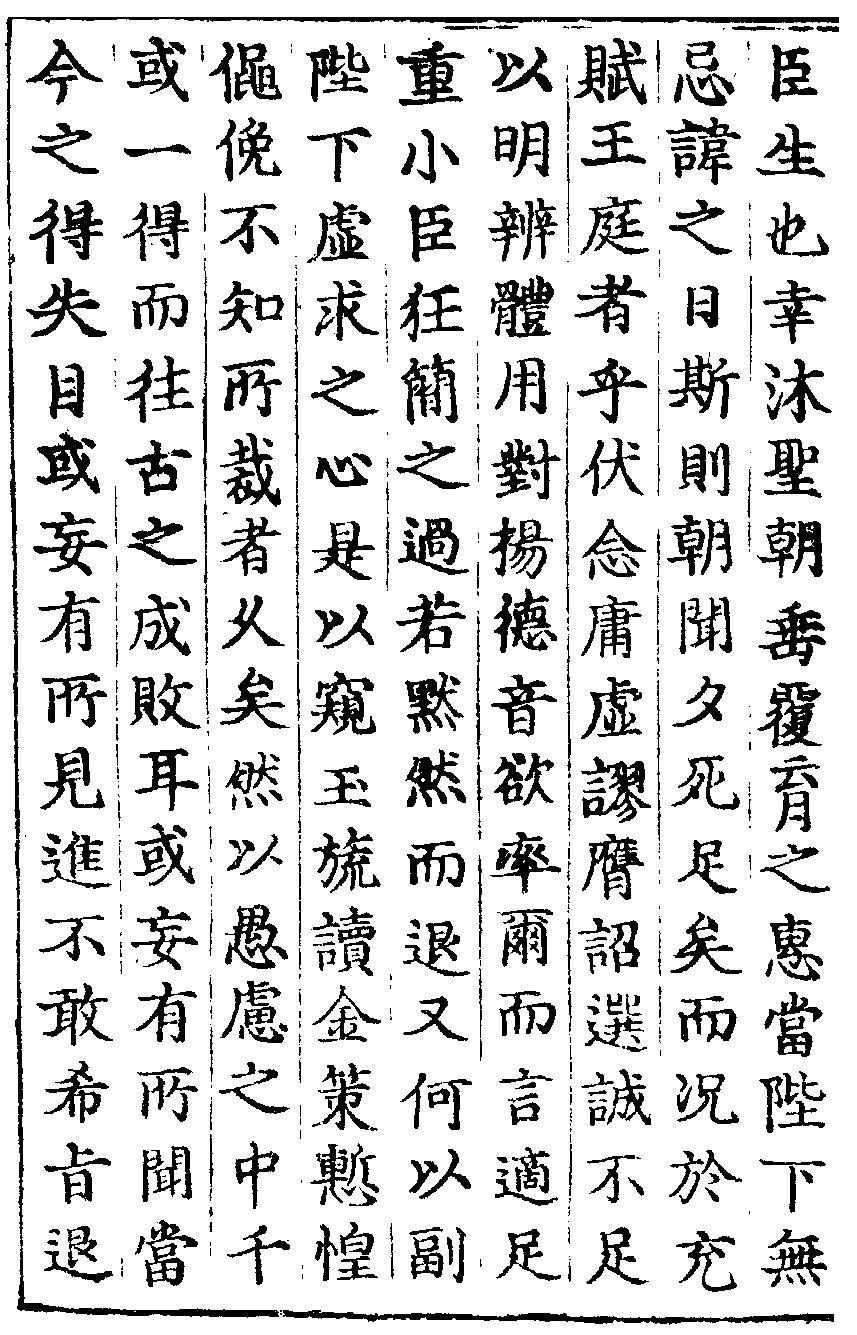 臣生也幸沐聖朝垂覆育之惠當陛下無
忌諱之日斯則朝聞夕死足矣而況於充
賦王庭者乎伏念庸虛謬膺詔選誠不足
以明辨體用對揚德音欲率爾而言適足
重小臣狂簡之過若默然而退又何以副
陛下虛求之心是以窺玉旒讀金策慙惶
僶俛不知所裁者久矣然以愚慮之中千
或一得而往古之成敗耳或妄有所聞當
今之得失目或妄有所見進不敢希旨退